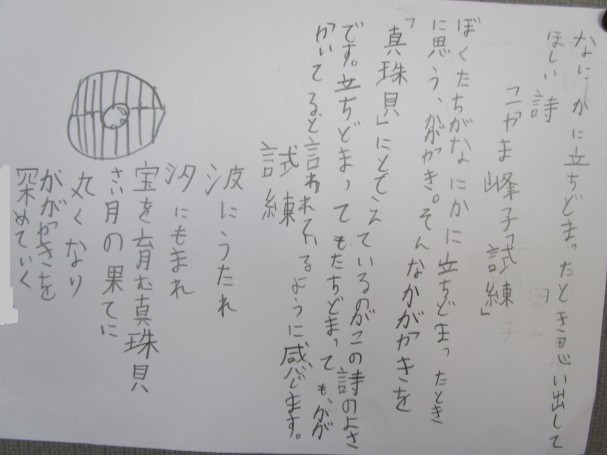 なにかに立ちどまったとき思い出して
ほしい詩
こやま峰子「試練」
ぼくたちがなにかに立ちどまったとき
に思う、かがやき。そんなかがやきを
「真珠貝」にたとえているのがこの詩のよさ
です。立ちどまってもたちどまっても、かが
かいてると言われているように感じます。
試練
波にうたれ
汐にもまれ
宝を育む真珠貝
さい月の果てに
丸くなり
かがやきを
深めていく